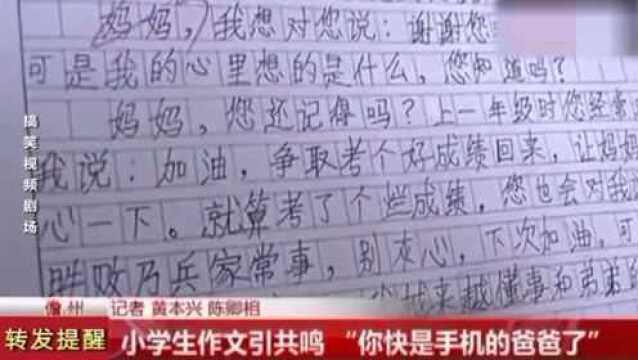 妈妈，我想对您说：谢谢您
可是我的心里想的是什么，您知道吗？
妈妈，您还记得吗？上一年级时您经常
我说：加油，争取考个好成绩回来，让妈妈
心一下。就算考了个烂成绩，您也会对我
胜败乃兵家常事，别灰心，下次加油，可
越来越懂事和弟弟的
搞笑视频剧场
儋州 记者 黄本兴 陈卿相
转发提醒 小学生作文引共鸣 “你快是手机的爸爸了”